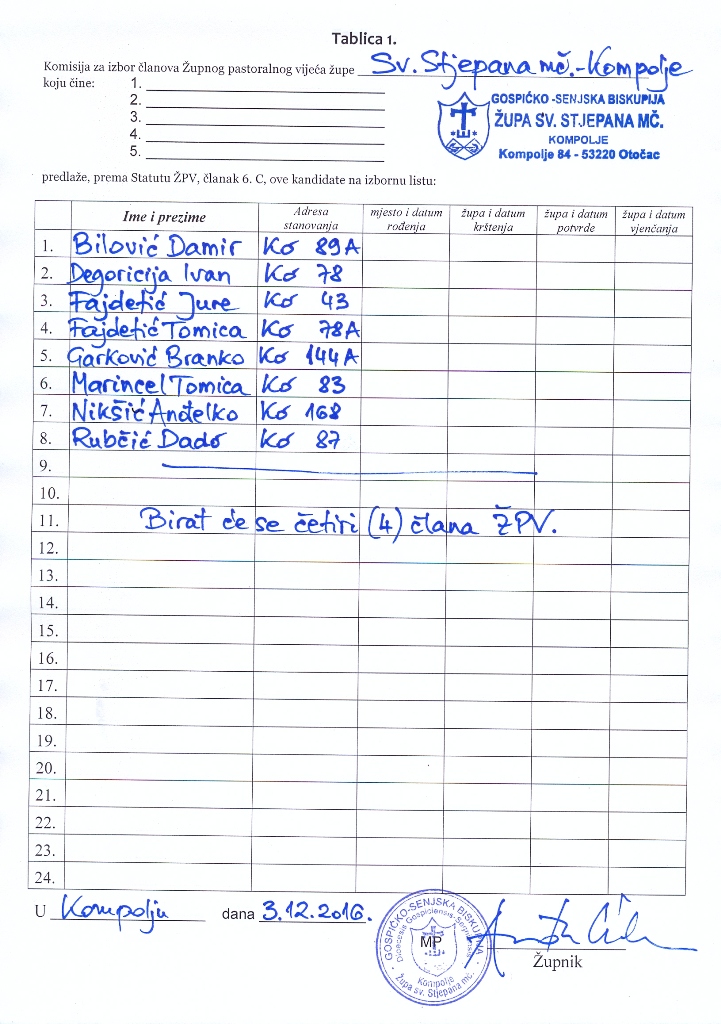 Tablica 1.
Komisija za izbor članova Župnog pastoralnog vijeća župe Sv. Stjepana mč.-Kompolje
koju čine:
1.
2.
3.
4.
5.
GOSPIĆKO -SENJSKA BISKUPIJA
ŽUPA SV. STJEPANA MČ.
KOMPOLJE
Kompolje 84 - 53220 Otočac
predlaže, prema Statutu ŽPV, članak 6. C, ove kandidate na izbornu listu:
Ime i prezime Adresa stanovanja mjesto i datum rođenja župa i datum krštenja župa i datum potvrde župa i datum vjenčanja
1. Bilović Damir Ko 89A
2. Degoricija Ivan Ko 78
3. Fajdetić Jure Ko 43
4. Fajdetić Tomica Ko 78A
5. Garković Branko Ko 144A
6. Marincel Tomica Ko 83
7. Nikšić Anđelko Ko 168
8. Rubčić Dado Ko 87
9.
10.
11. Birat će se četiri (4) člana ŽPV.
12.
13.
14.
15.
16.
17.
18.
19.
20.
21.
22.
23.
24.
U Kompolju dana 3.12.2016.
GOSPIĆKO-SENJSKA BISKUPIJA
Dioecesis Gospiciensis-Segniensis
MP
Kompolje
Župa sv. Stjepana mč.
Župnik